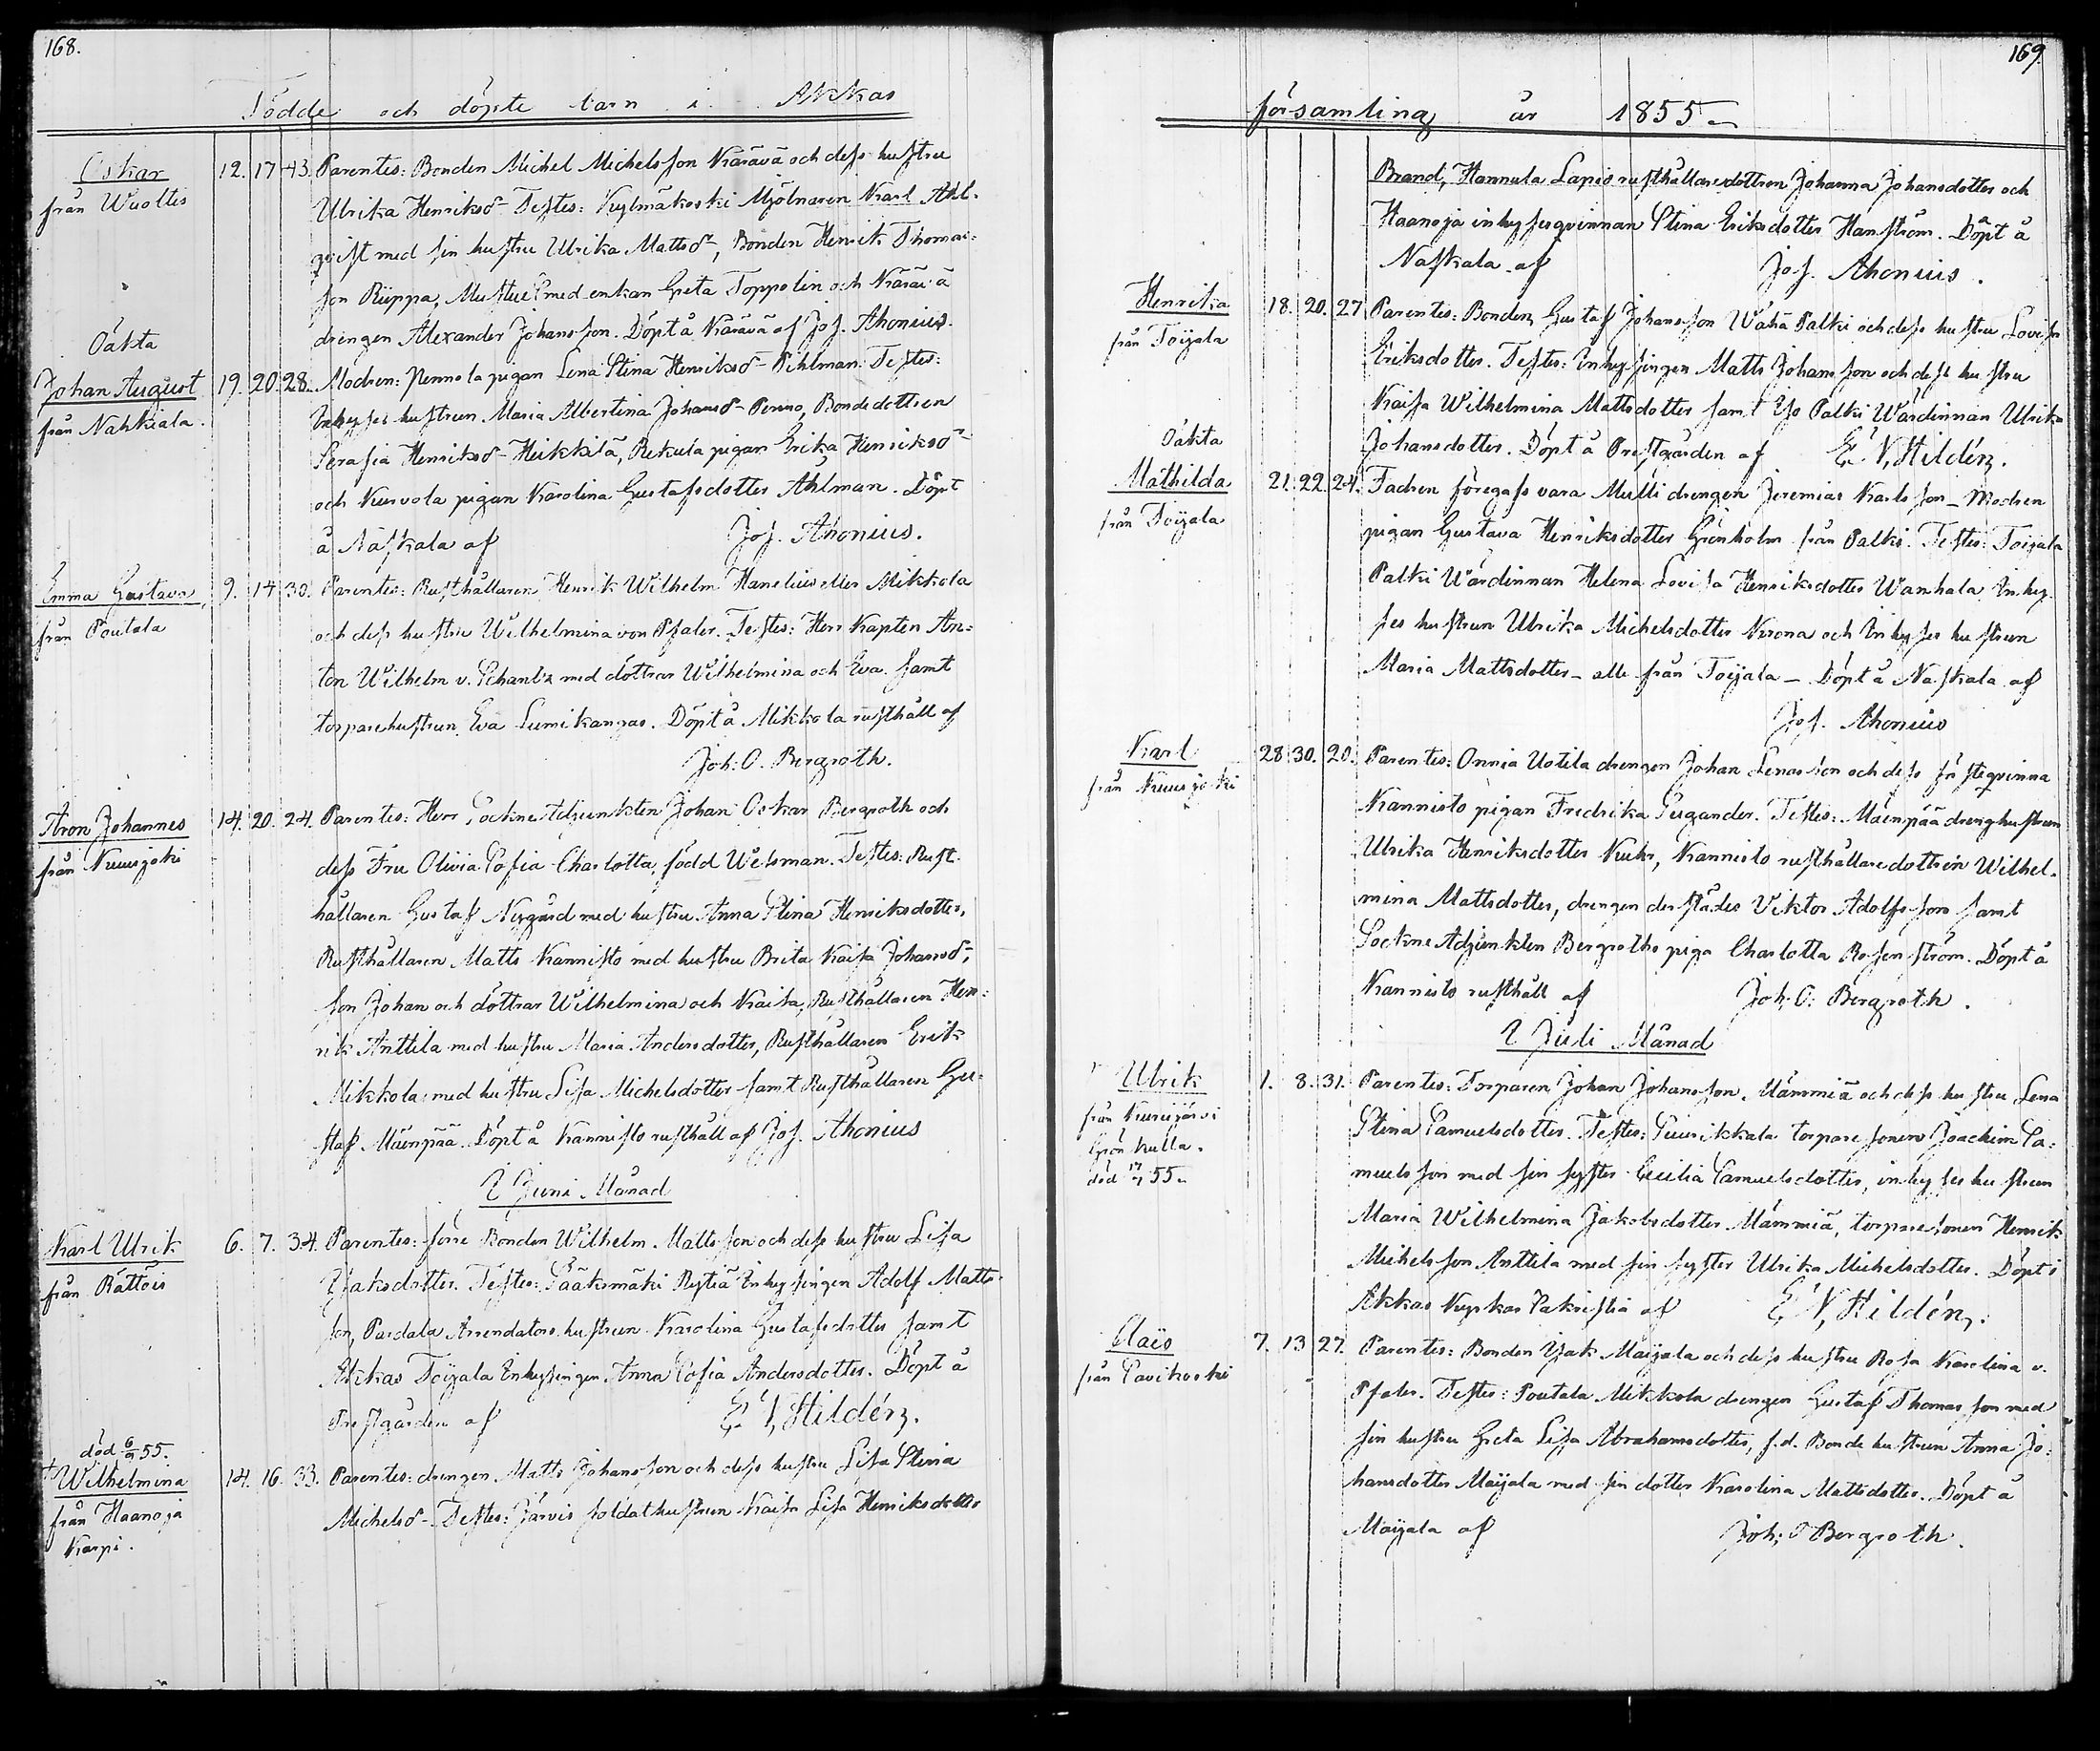 168.
Födde och döpte barn i Akkas
Oskar 12. 17 43. Parentes: Bonden Michel Michelsson Kärävä och dess hustru
från Wuoltis Ulrika Henriksdr Testes: Kylmäkoski Mjölnaren Karl Ahl-
qvist med sin hustru Ulrika Mattsdr, Bonden Henrik Thomas-
son Riippa, med enkan Greta Toppolin och Kärävä
drengen Alexander Johansson. Döpt å Kärävä af Jos. Ahonius.
Oäkta
Johan August 19. 20. 28. Modren: pigan Lena Stina Henriksdr Pihlman. Testes:
från Nahkiala. Inhyses hustrun Maria Albertina Johansdr Penno, Bondedottren
Serafia Henriksdr Heikkilä, Rekula pigan Erika Henriksdr
och Kurvola pigan Karolina Gustafsdotter Ahlman. Döpt
å Naskala af Jos. Ahonius.
Emma Gustava, 9. 14 30. Parentes: Rusthållaren Henrik Wilhelm Hanelius eller Mikkola
från Poutala och dess hustru Wilhelmina von Pfaler. Testes: Herr Kapten An-
ton Wilhelm v. Schantz med döttrar Wilhelmina och Eva samt
torparehustrun Eva Lumikangas. Döpt å Mikkola rusthåll af
Joh: O. Bergroth.
Aron Johannes 14. 20. 24. Parentes: Herr Sockne Adjunkten Johan Oskar Bergroth och
från Kuurijoki dess Fru Olivia Sofia Charlotta, född Welsman. Testes: Rust-
hållaren Gustaf Nygård med hustru Anna Stina Henriksdotter,
Rusthållaren Matts Kannisto med hustru Brita Kaisa Johansdr,
son Johan och döttrar Wilhelmina och Kaisa, Rusthållaren Hen-
rik Anttila med hustru Maria Andersdotter, Rusthållaren Erik
Mikkola med hustru Lisa Michelsdotter samt Rusthållaren Gu-
staf Mäenpää. Döpt å Kannisto rusthåll af Jos. Ahonius
I Juni Månad
Karl Ulrik 6. 7. 34. Parentes: förre Bonden Wilhelm Mattsson och dess hustru Lisa
från Rättöis Isaksdotter. Testes: Sääksmäki Rytiä Inhysingen Adolf Matts-
son, Arrendators hustrun Karolina Gustafsdotter samt
Akkas Toijala Inhysingen Anna Sofia Andersdotter. Döpt å
Prestgården af E. V. Hildén.
död 6/9 55.
Wilhelmina 14. 16. 33. Parentes: drengen Matts Johansson och dess hustru Lisa Stina
från Haanoja Michelsdr Testes: Järvis soldathustrun Kaisa Lisa Henriksdotter
Karpi.
169.
församling år 1855
Brand, Hannula Lapio rusthållaredottren Johanna Johansdotter och
Haanoja inhysesqvinnan Stina Eriksdotter Hanström. Döpt å
Naskala af Jos. Ahonius.
Henrika 18. 20. 27 Parentes: Bonden Gustaf Johansson Wähä Palki och dess hustru Lovisa
från Toijala Eriksdotter. Testes: Inhysingen Matts Johansson och dess hustru
Kaisa Wilhelmina Mattsdotter samt Iso Palki Wärdinnan Ulrika
Johansdotter. Döpt å Prestgården af E. V. Hildén.
Oäkta
Mathilda 21. 22. 24. Fadren föregafs vara Mulli drengen Jeremias Karlsson – Modren
från Toijala pigan Gustava Henriksdotter Grönholm från Palki. Testes: Toijala
Palki Wärdinnan Helena Lovisa Henriksdotter Wanhala Inhy-
ses hustrun Ulrika Michelsdotter Krona och Inhyses hustrun
Maria Mattsdotter – alle från Toijala – Döpt å Naskala af
Jos. Ahonius
Karl 28 30. 20. Parentes: Onnia Uotila drengen Johan Lenasson och dess fästeqvinna
från Kuurijoki Kannisto pigan Fredrika Pugander. Testes: Mäenpää drenghustrun
Ulrika Henriksdotter Kuhr, Kannisto rusthållaredottren Wilhel-
mina Mattsdotter, drengen derstädes Viktor Adolfsson samt
Sockne Adjunkten Bergroths piga Charlotta Rosenström. Döpt å
Kannisto rusthåll af Joh. O: Bergroth.
I Juli Månad
Ulrik 1. 8. 31. Parentes: Torparen Johan Johansson Mämmiä och dess hustru Lena
från Kurisjärvi Stina Samuelsdotter. Testes: torparesonen Joachim Sa-
Grönkulla. muelsson med sin syster Cecilia Samuelsdotter, inhyses hustrun
död 17/7 55. Maria Wilhelmina Jakobsdotter Mämmiä, torparesonen Henrik
Michelsson Anttila med sin syster Ulrika Michelsdotter. Döpt i
Akkas Kyrkas Sakristia af E. V. Hildén.
Claës 7. 13 27. Parentes: Bonden Isak Maijala och dess hustru Rosa Karolina v.
från Savikoski Pfaler. Testes: Poutala Mikkola drengen Gustaf Thomasson med
sin hustru Greta Lisa Abrahamsdotter, f.d. Bonde hustrun Anna Jo-
hansdotter Maijala med sin dotter Karolina Mattsdotter. Döpt å
Maijala af Joh: O Bergroth.